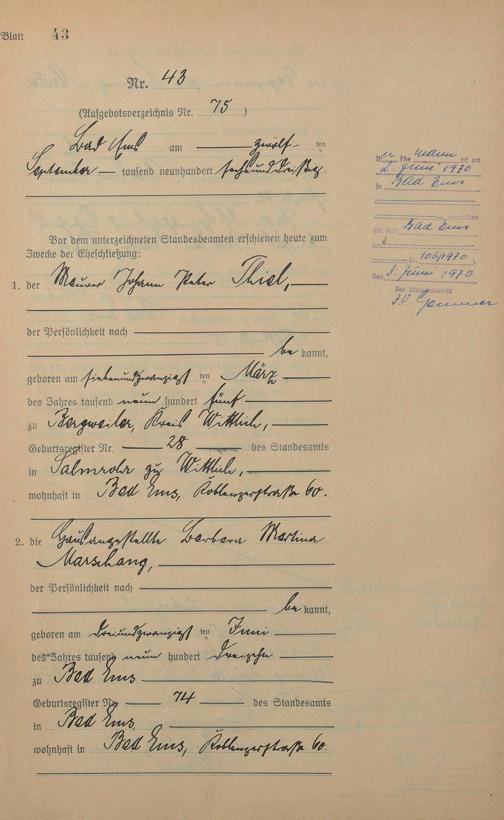 Blatt 43
Nr. 43
(Aufgebotsverzeichnis Nr. 75)
Bad Ems am zwölf ten
September tausend neunhundert sechsunddreißig
Vor dem unterzeichneten Standesbeamten erschienen heute zum
Zwecke der Eheschließung:
1. der Maurer Johann Peter Thiel,
der Persönlichkeit nach
be kannt,
geboren am siebenundzwanzigst ten März
des Jahres tausend neun hundert fünf
zu Bergweiler, Kreis Wittlich,
Geburtsregister Nr. 28 des Standesamts
in Salmrohr zu Wittlich,
wohnhaft in Bad Ems, Koblenzerstraße 60.
2. die Hausangestellte Barbara Martina
Marschang,
der Persönlichkeit nach
be kannt,
geboren am dreiundzwanzigst ten Juni
des Jahres tausend neun hundert dreizehn
zu Bad Ems
Geburtsregister Nr. 74 des Standesamts
in Bad Ems,
wohnhaft in Bad Ems, Koblenzerstraße 60
Der Ehemann ist am
2. Juni 1970
in Bad Ems
verstorben
Bad Ems
Nr. 106/1970).
Den 3. Juni 1970
Der Standesbeamte